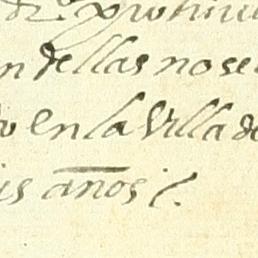 n dellas no se
o en la Villa de
is años